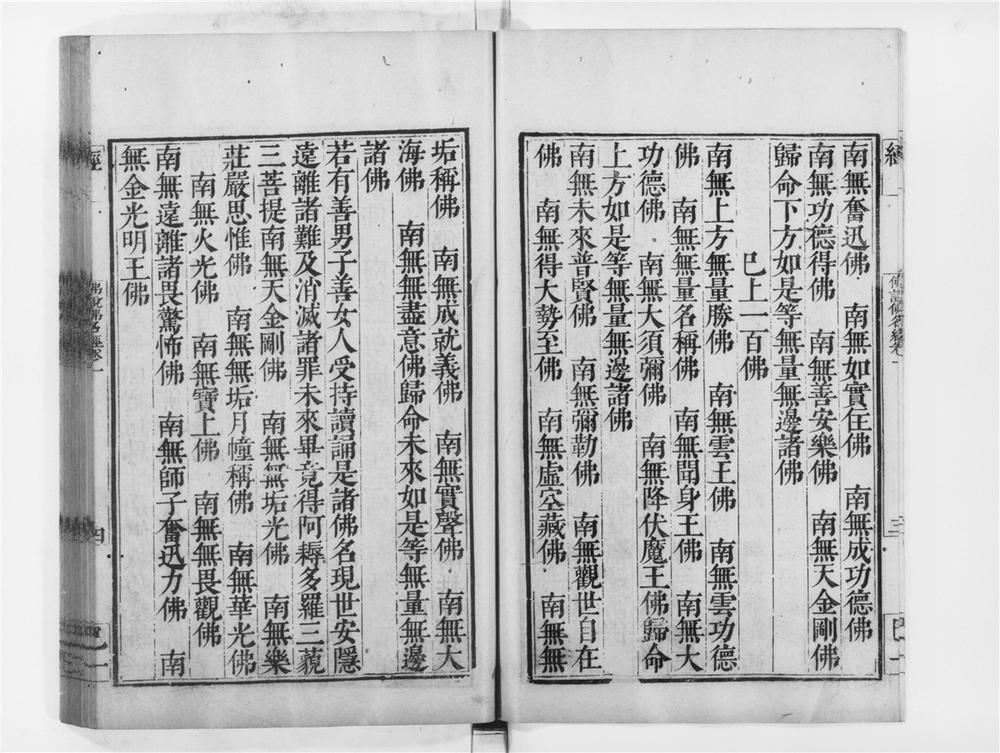 南無奮迅佛　南無如實住佛　南無成功德佛
南無功德得佛　南無善安樂佛　南無天金剛佛
歸命下方如是等無量無邊諸佛
已上一百佛
南無上方無量勝佛　南無雲王佛　南無雲功德
佛　南無無量名稱佛　南無聞身王佛　南無大
功德佛　南無大須彌佛　南無降伏魔王佛歸命
上方如是等無量無邊諸佛
南無未來普賢佛　南無彌勒佛　南無觀世自在
佛　南無得大勢至佛　南無虛空藏佛　南無無
垢稱佛　南無成就義佛　南無實聲佛　南無大
海佛　南無無盡意佛歸命未來如是等無量無邊
諸佛
若有善男子善女人受持讀誦是諸佛名現世安隱
遠離諸難及消滅諸罪未來畢竟得阿耨多羅三藐
三菩提南無天金剛佛　南無無垢光佛　南無樂
莊嚴思惟佛　南無無垢月幢稱佛　南無華光佛
南無火光佛　南無寶上佛　南無無畏觀佛
南無遠離諸畏驚怖佛　南無師子奮迅力佛　南
無金光明王佛
經
佛說佛名經卷一
四